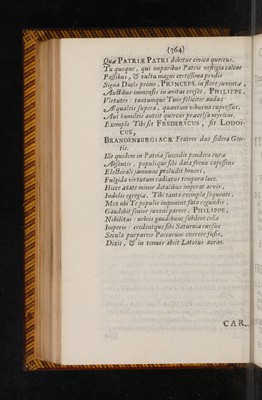 (364)
Quæ PATRIÆ PATRI debetur civica quercus.
Tu quoque, qui imparibus Patris vestigia calcas
Passibus, & vultu magni certissima prodis
Signa Ducis primi, PRINCEPS, in flore juventæ,
Auctibus immensis in annos cresce, PHILIPPE,
Virtutis: tantumque Tuos feliciter audax
Æqualis supera, quantum viburna cupressus,
Aut humiles anteit quercus præcelsa myricas.
Exemplo Tibi sit FREDERICUS, sit LODOI-
CUS,
BRANDENBURGIACÆ Fratres duo sidera Gen-
tis.
Ille quidem in Patriâ succedit pondera curæ
Absentis, populique sibi data frena capessens
Electorali juvenum præludit honori,
Fulgida virtutum radiatus tempora luce.
Hic et ætate minor dotalibus imperat arvis,
Indolis egregiæ. Tibi tanta exempla sequenti,
Mox ubi Te populis imponent fata regundis,
Gaudebit senior juveni parere, PHILIPPE,
Nobilitas: urbes gaudebunt subdere colla
Imperio: credentque sibi Saturnia rursus
Secula purpureo Parcarum currere fuso,
Dixit, & in tenues abiit Latous auras.
CAR-